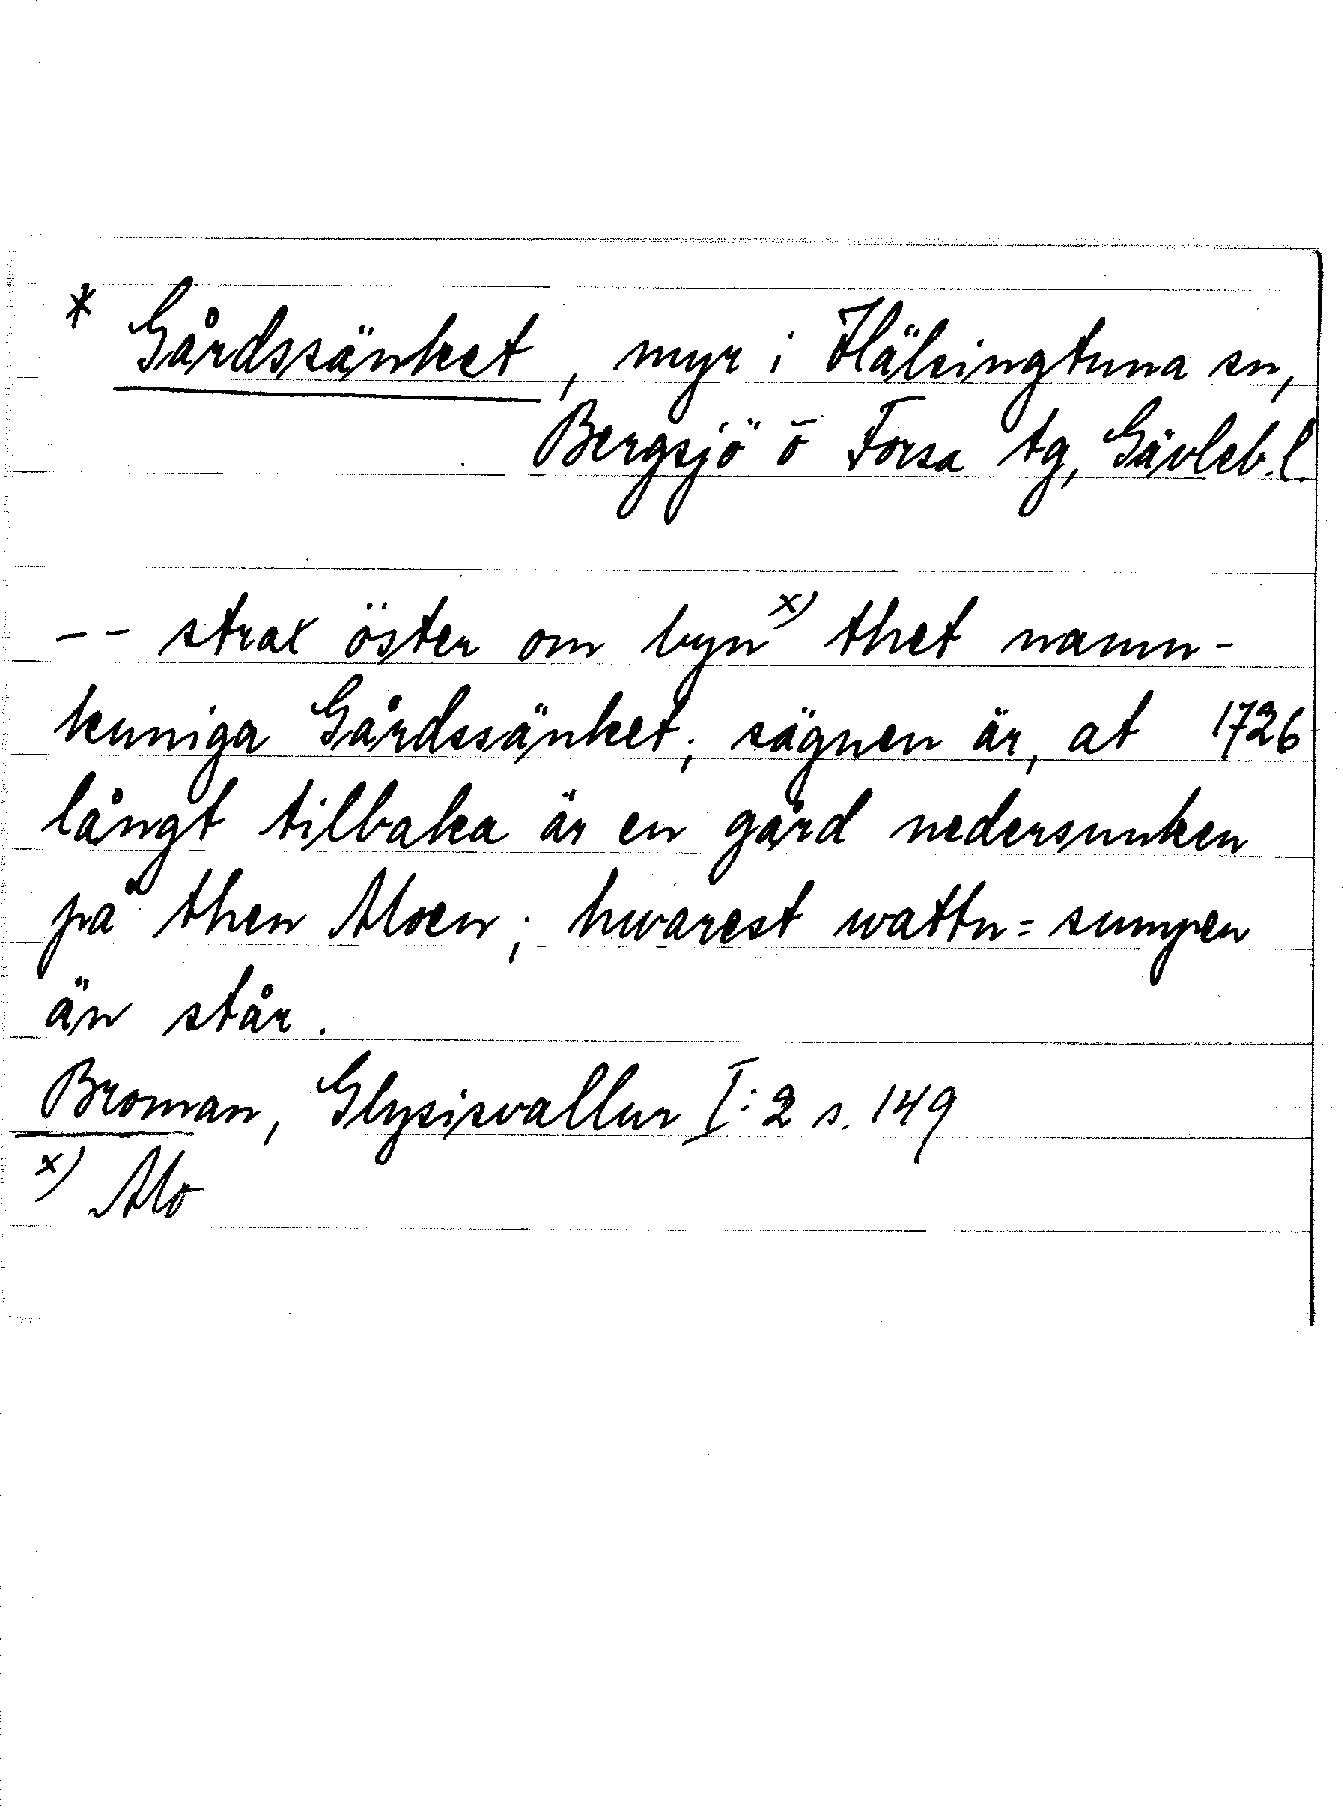 * Gårdssänket, myr i Hälsingtuna sn,
Bergsjö o Forsa tg, Gävleb.l.
-- strax öster om byn x) thet namn-
kuniga Gårdssänket; sägnen är, at 1726
långt tilbaka är en gård nedersunken
på then Moen; hwarest wattn=sumpen
än står.
Broman, Glysisvallur I:2 s. 149
x) Mo